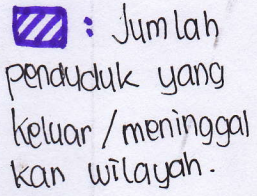 : Jumlah
penduduk yang
keluar / meninggal
kan wilayah.